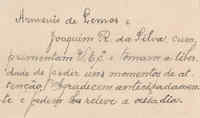 Armenio de Lemos e
Joaquim R. da Silva, cum
primentam V. Ex.ª e tomam a liber
dade de pedir uns momentos de at
tenção. Agradecem antecipadamen
te e pedem releve a ousadia.